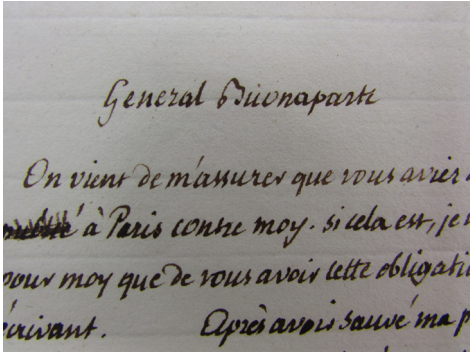 General Buonaparte
On vient de m'assurer que vous aviez
à Paris contre moy. si cela est, je
pour moy que de vous avoir cette obligati
écrivant. Après avoir sauvé ma p